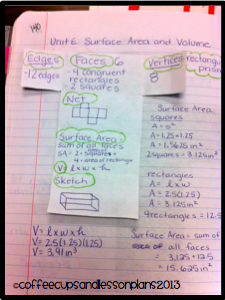 140
Unit 6: Surface Area and Volume
Edges
-12 edges
Faces 6
- 4 congruent
rectangles
- 2 squares
Vertices
8
rectangular
prism
Net
Surface Area
sum of all faces
SA = 2 - squares
4 - area of rectangle
V = l x w x h
Sketch
V = l x w x h
V = 2.5(1.25)(1.25)
V = 3.91 in³
Surface Area
squares
A = s²
A = 1.25 x 1.25
A = 1.5625 in²
2 squares = 3.125 in²
rectangles
A = l x w
A = 2.5(1.25)
A = 3.125 in²
4 rectangles = 12.5
Surface Area = sum of
all faces
= 3.125 + 12.5
= 15.625 in²
©coffeecupsandlessonplans2013